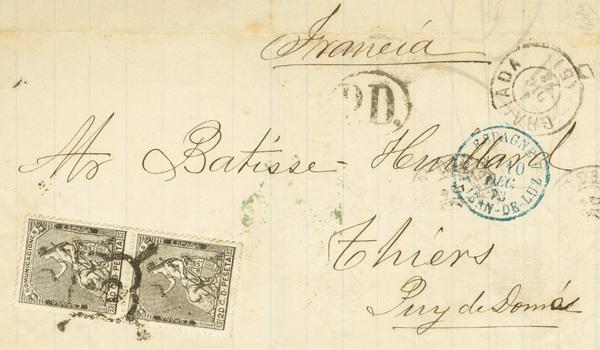 Francia
GRANADA
(5)
P.D.
ESPAGNE
10
DEC
73
ST JEAN-DE-LUZ
Mr Batisse-
Thiers
Puy de Domás
COMUNICACIONES
ESPAÑA
20 C. DE PESETA
ESPAÑA
20 C. DE PESETA